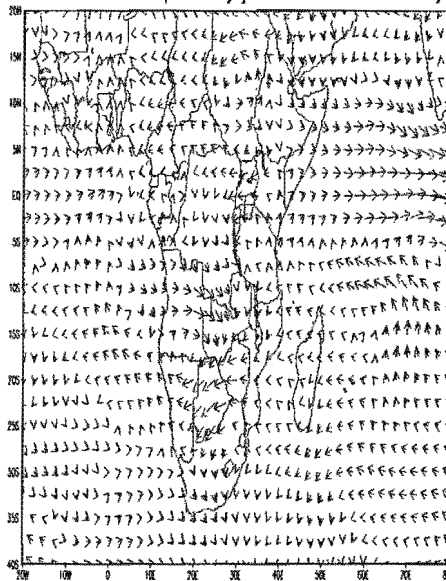 20N
15N
10N
5N
0
5S
10S
15S
20S
25S
30S
35S
40S
20W 10W 0 10E 20E 30E 40E 50E 60E 70E